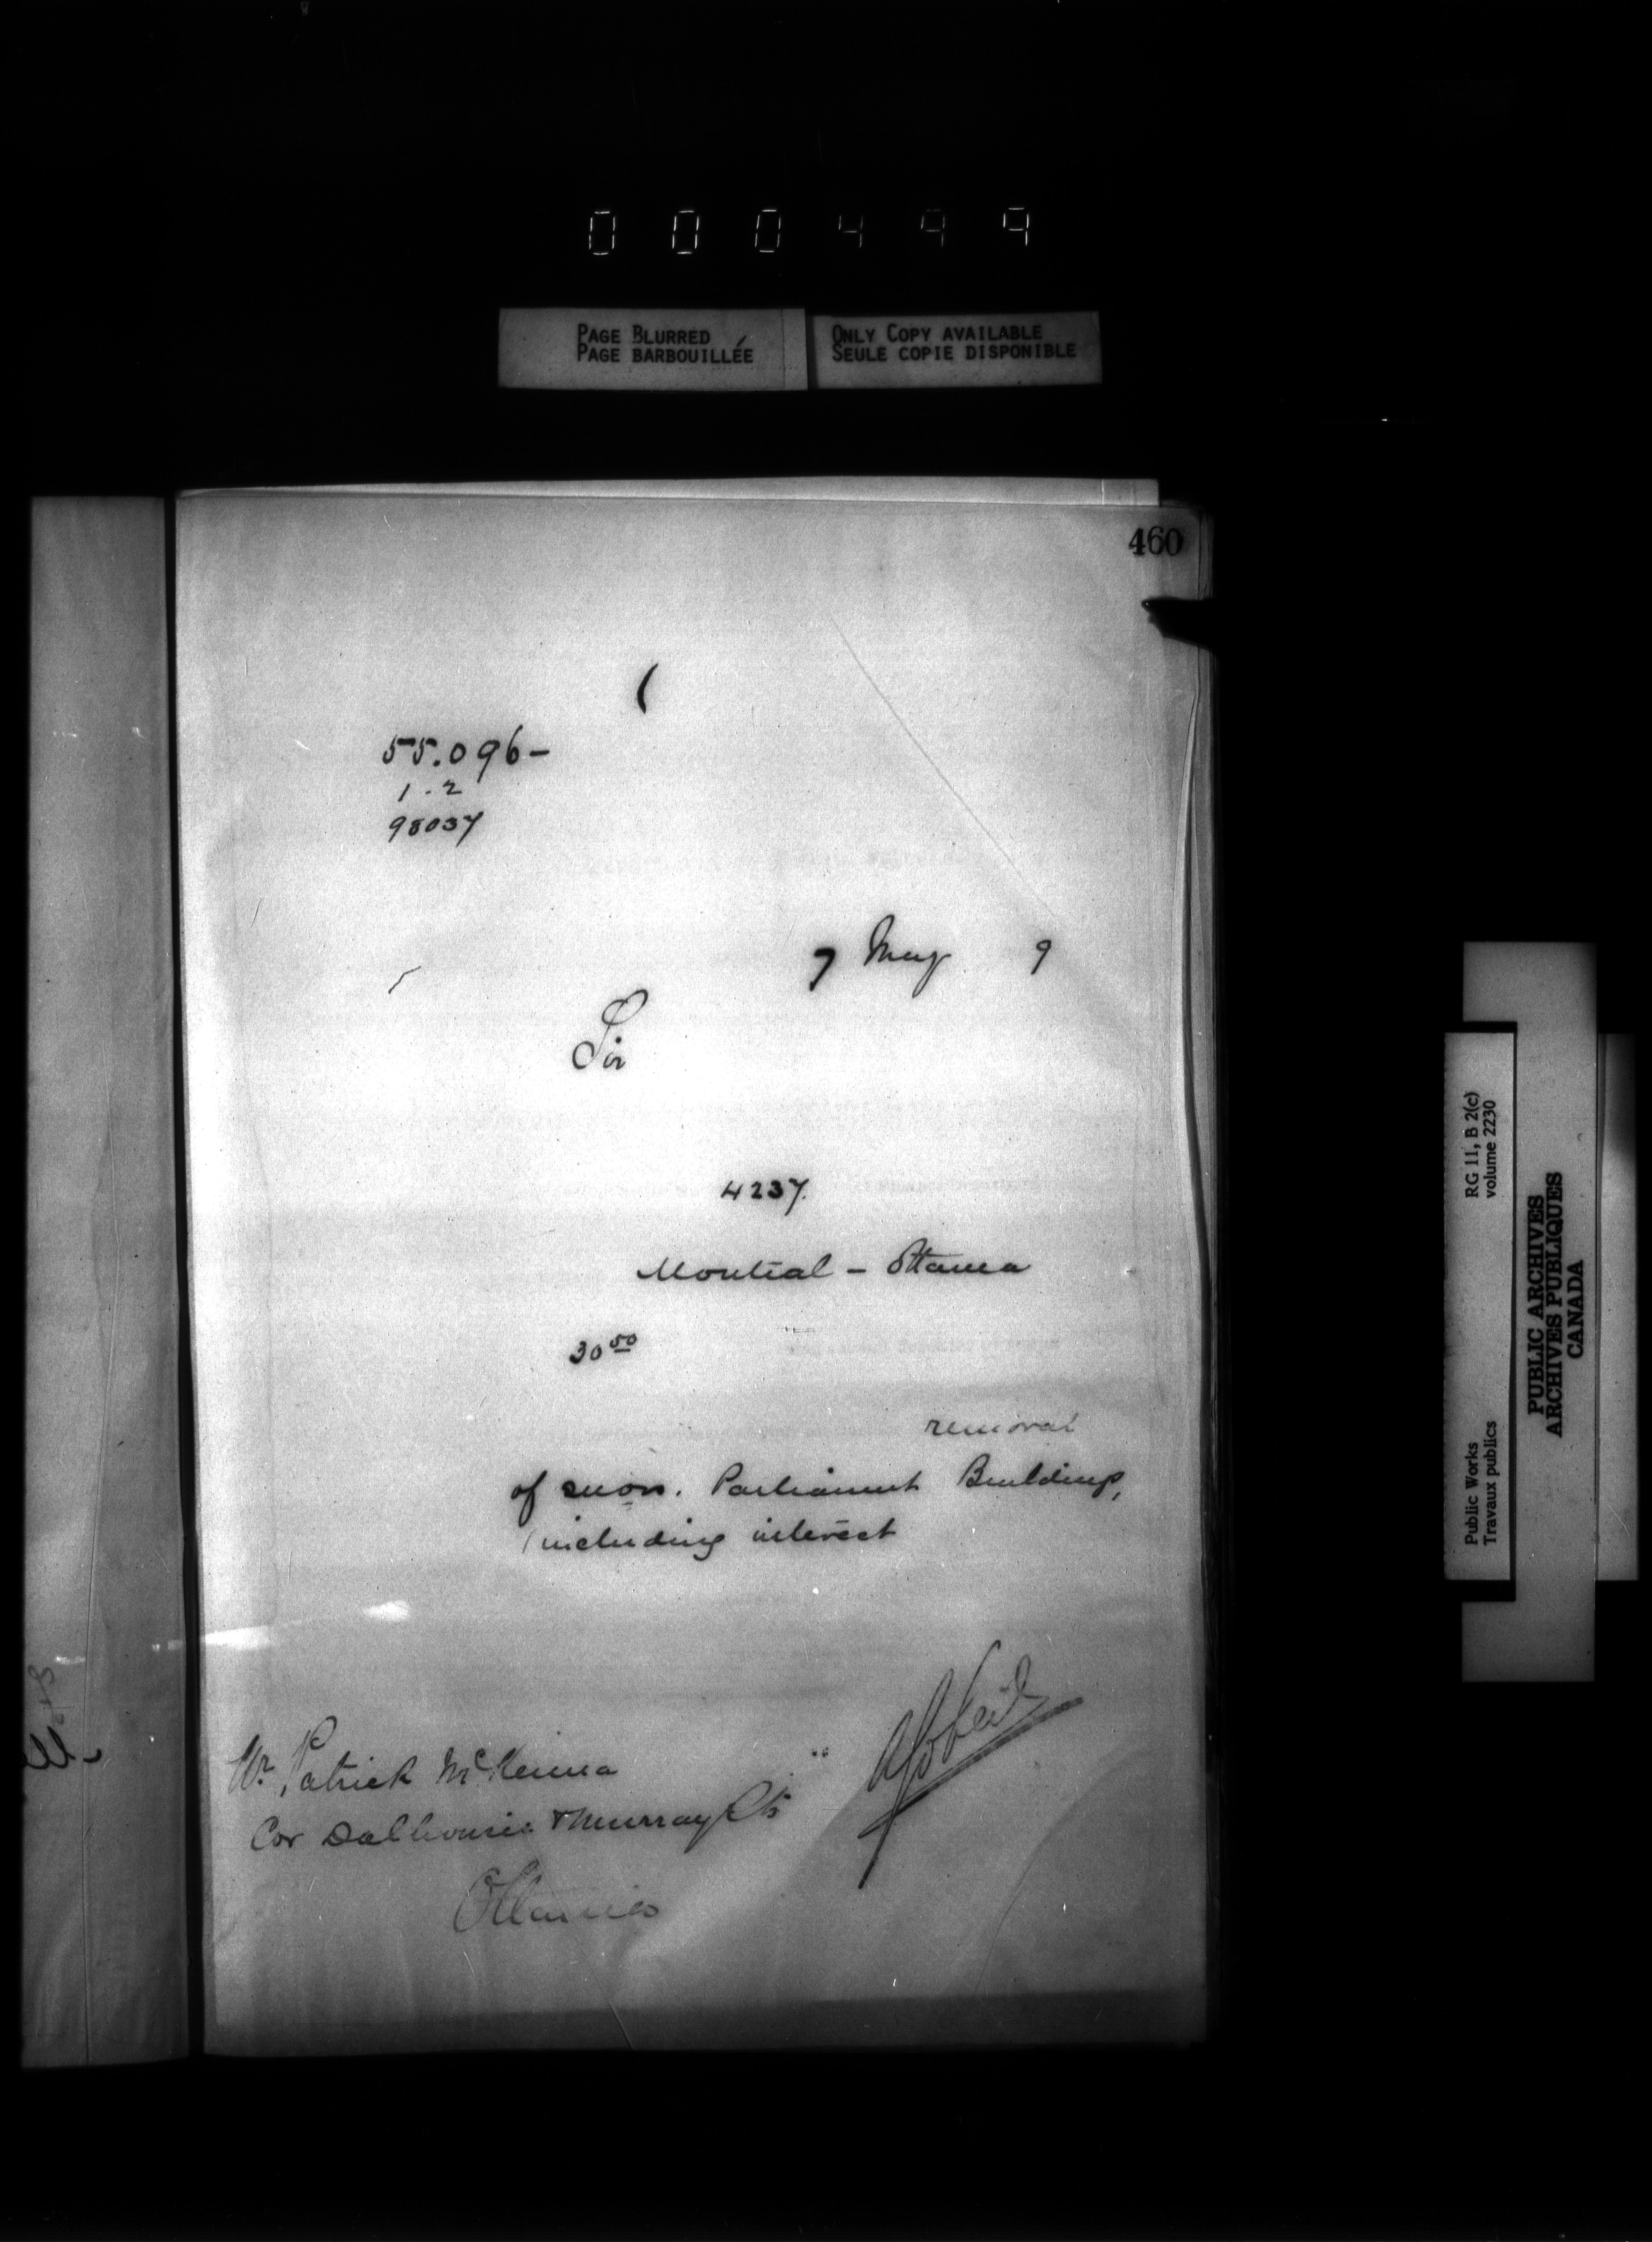 000499
PAGE BLURRED
PAGE BARBOUILLÉE
ONLY COPY AVAILABLE
SEULE COPIE DISPONIBLE
460
55.096-
1-2
98037
7 May 9
Sir
4237.
Montreal - Ottawa
30 50
removal
of snow. Parliament Buildings,
including interest
Mr. Patrick McKenna
Cor Dalhousie & Murray Sts
Ottawa
RG 11, B 2(c)
volume 2230
Public Works
Travaux publics
PUBLIC ARCHIVES
ARCHIVES PUBLIQUES
CANADA